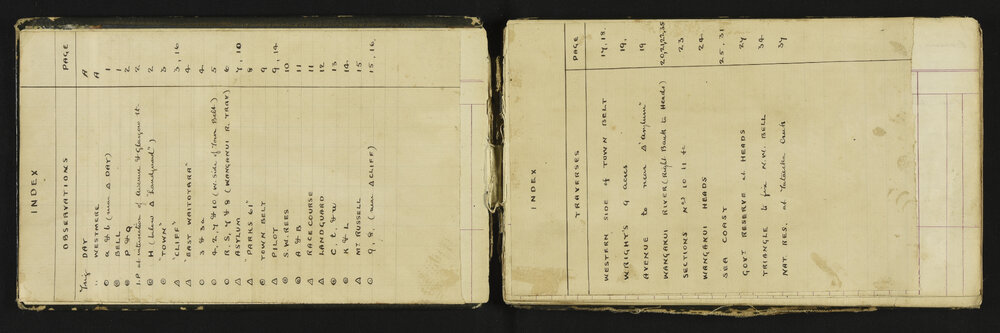 INDEX
OBSERVATIONS PAGE
Trig DAY A
" WESTMERE A
⊙ a & b (near △ DAY) 1
◎ BELL 1
⊙ P & Q 2
I.P at intersection of Avenue & Glasgow St 2
◎ H (below △ "Landguard") 2
◎ "TOWN" 3
△ "CLIFF" 3, 16
△ "EAST WAITOTARA" 4
○ 3 & 3a 4
○ 4, 2, 7 & 10 (W. side of Town Belt) 5
○ R, S, 7 & 8 (WANGANUI R. TRAV) 6
△ ASYLUM 7, 10
△ "PARKS 61" 8
◎ TOWN BELT 9
△ PILOT 9, 14
◎ S.W. REES 10
◎ A & B 11
△ RACE COURSE 11
△ LANDGUARD 12
○ C t & W 13
○ K & L 14
△ MT RUSSELL 15
○ 9, 8, (near △ CLIFF) 15, 16
INDEX
TRAVERSES PAGE
WESTERN SIDE of TOWN BELT 17, 18
WRIGHT'S 9 acres 19,
AVENUE to near △ "Asylum" 19
WANGANUI RIVER (Right Bank to Heads) 20,21,22,35
SECTIONS Nos 10 11 &c 23
WANGANUI HEADS 24
SEA COAST 25, 31
GOVT RESERVE at HEADS 27
TRIANGLE to fix N.W. BELL 34
NAT. RES. at Creek 37